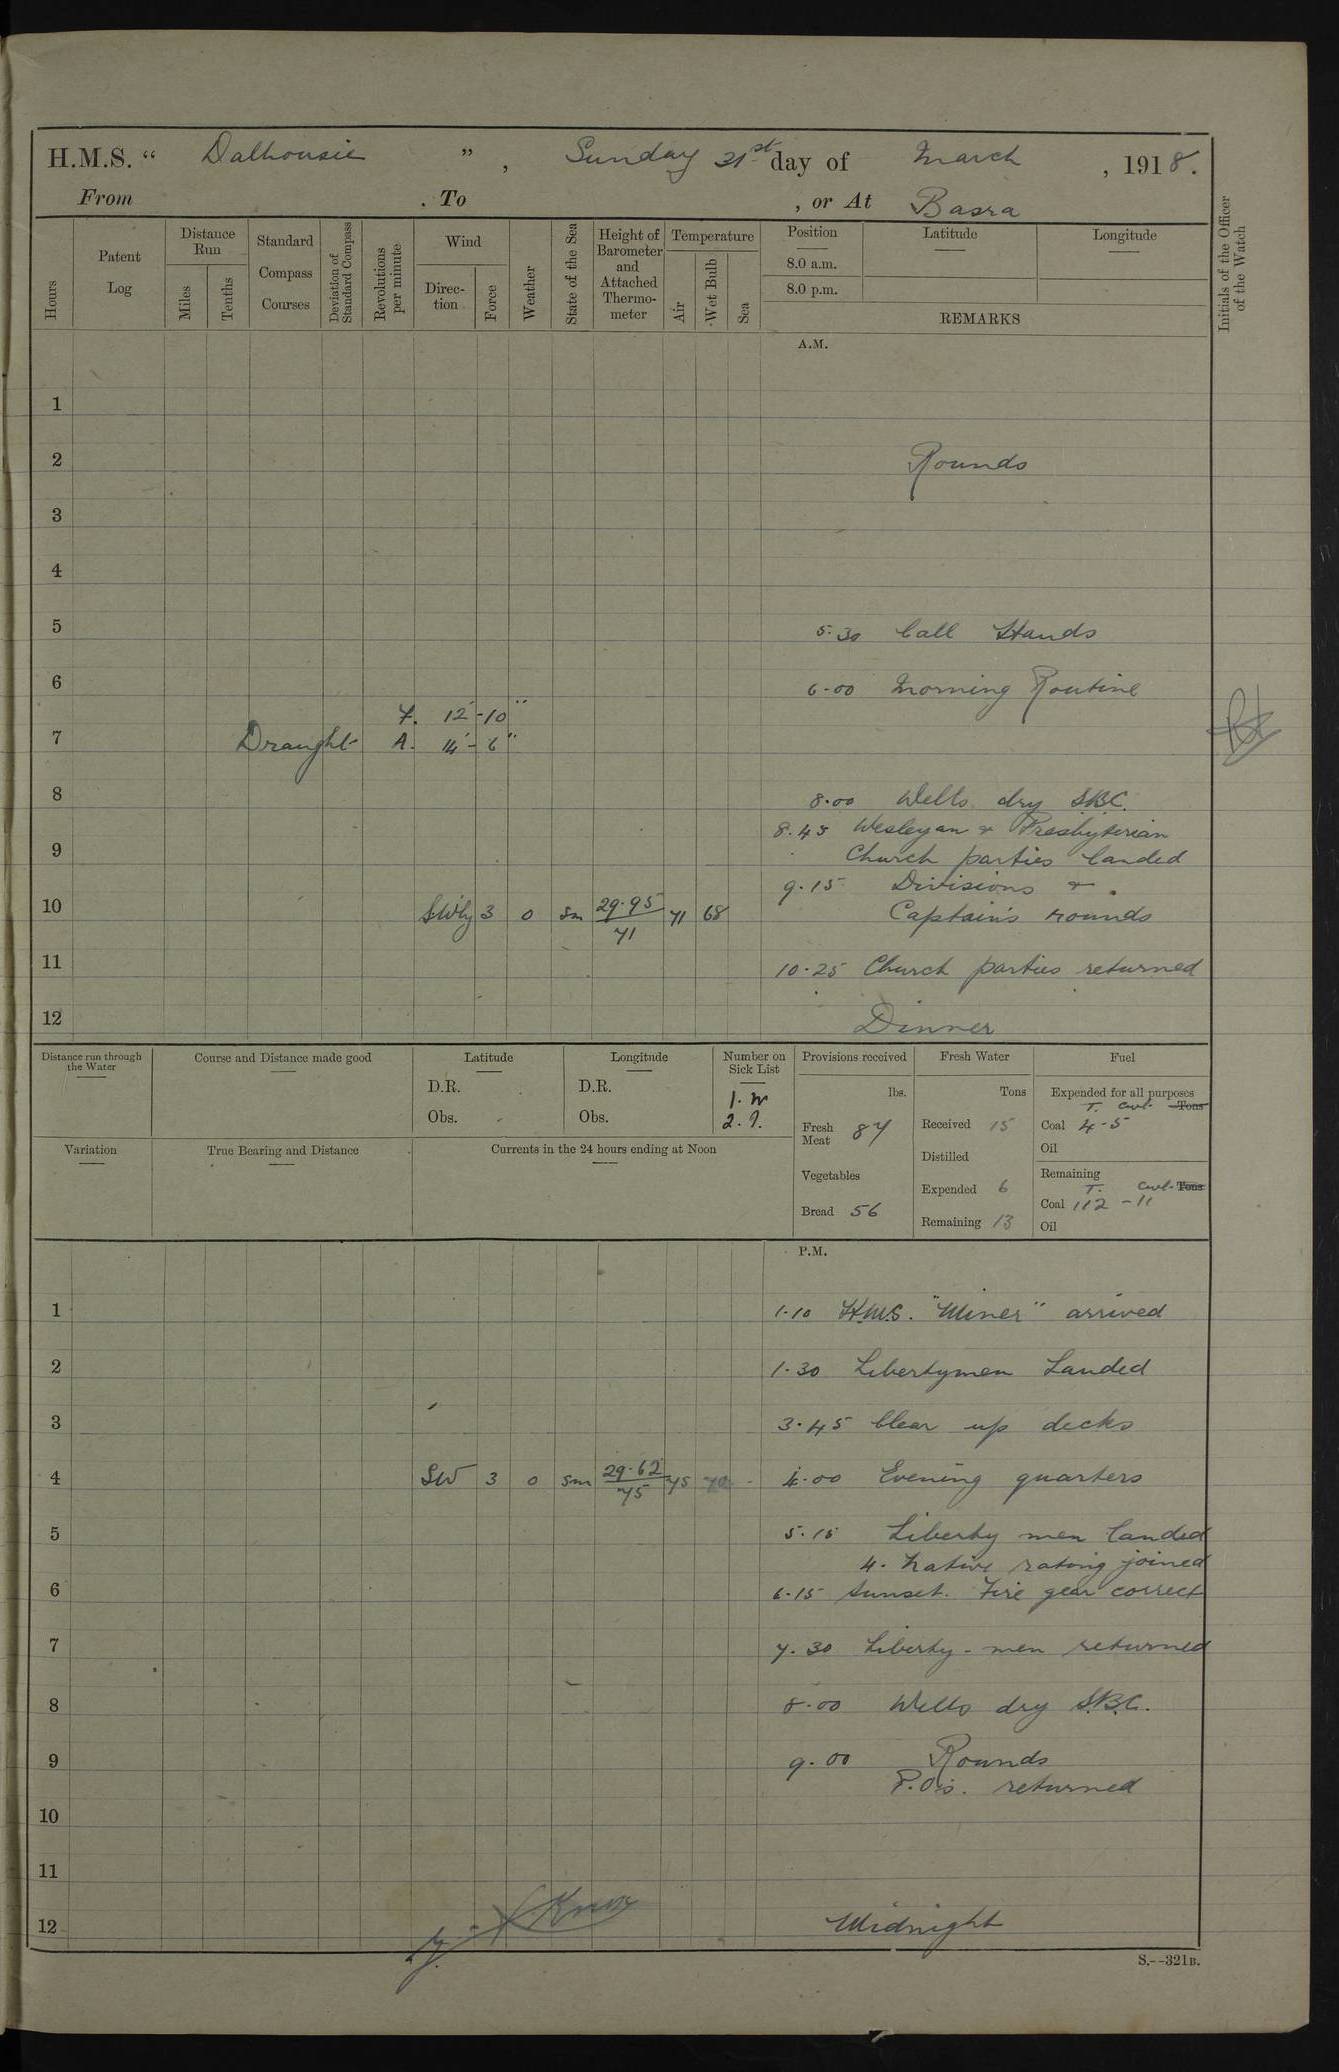 H.M.S. “ Dalhousie ” , Sunday 31st day of March , 1918.
From . To , or At Basra
Hours
Patent Log
Distance Run
Miles
Tenths
Standard Compass Courses
Deviation of Standard Compass
Revolutions per minute
Wind
Direc-tion
Force
Weather
State of the Sea
Height of Barometer and Attached Thermo-meter
Temperature
Air
Wet Bulb
Sea
Position
8.0 a.m.
8.0 p.m.
Latitude
Longitude
REMARKS
Initials of the Officer of the Watch
A.M.
1
2 Rounds
3
4
5 5.30 Call Hands
6 6-00 Morning Routine
F. 12'-10"
7 Draught A. 14'-6"
8 8.00 Wells dry S.B.C.
8.45 Wesleyan & Presbyterian
9 Church parties landed
9.15 Divisions &
10 SWly 3 o sm 29.95 71 71 68 Captain's rounds
11 10.25 Church parties returned
12 Dinner
Distance run through the Water
Course and Distance made good
Latitude
D.R.
Obs.
Longitude
D.R.
Obs.
Number on Sick List
2.
Variation
True Bearing and Distance
Currents in the 24 hours ending at Noon
Provisions received
lbs.
Fresh Meat 87
Vegetables
Bread 56
Fresh Water
Tons
Received 15
Distilled
Expended 6
Remaining 13
Fuel
Expended for all purposes
T. Cwt. Tons
Coal 4-5
Oil
Remaining
T. Cwt. Tons
Coal 112-11
Oil
P.M.
1 1.10 H.M.S. "Miner" arrived
2 1.30 Libertymen Landed
3 3.45 Clear up decks
4 SW 3 o sm 29.62 75 75 70 4.00 Evening quarters
5 5.15 Liberty men landed
4. Native rating joined
6 6.15 Sunset. Fire gear correct
7 7.30 Liberty-men returned
8 8.00 Wells dry S.B.C.
9 9.00 Rounds
P.O's. returned
10
11
Knox
12 Midnight
S.--321B.